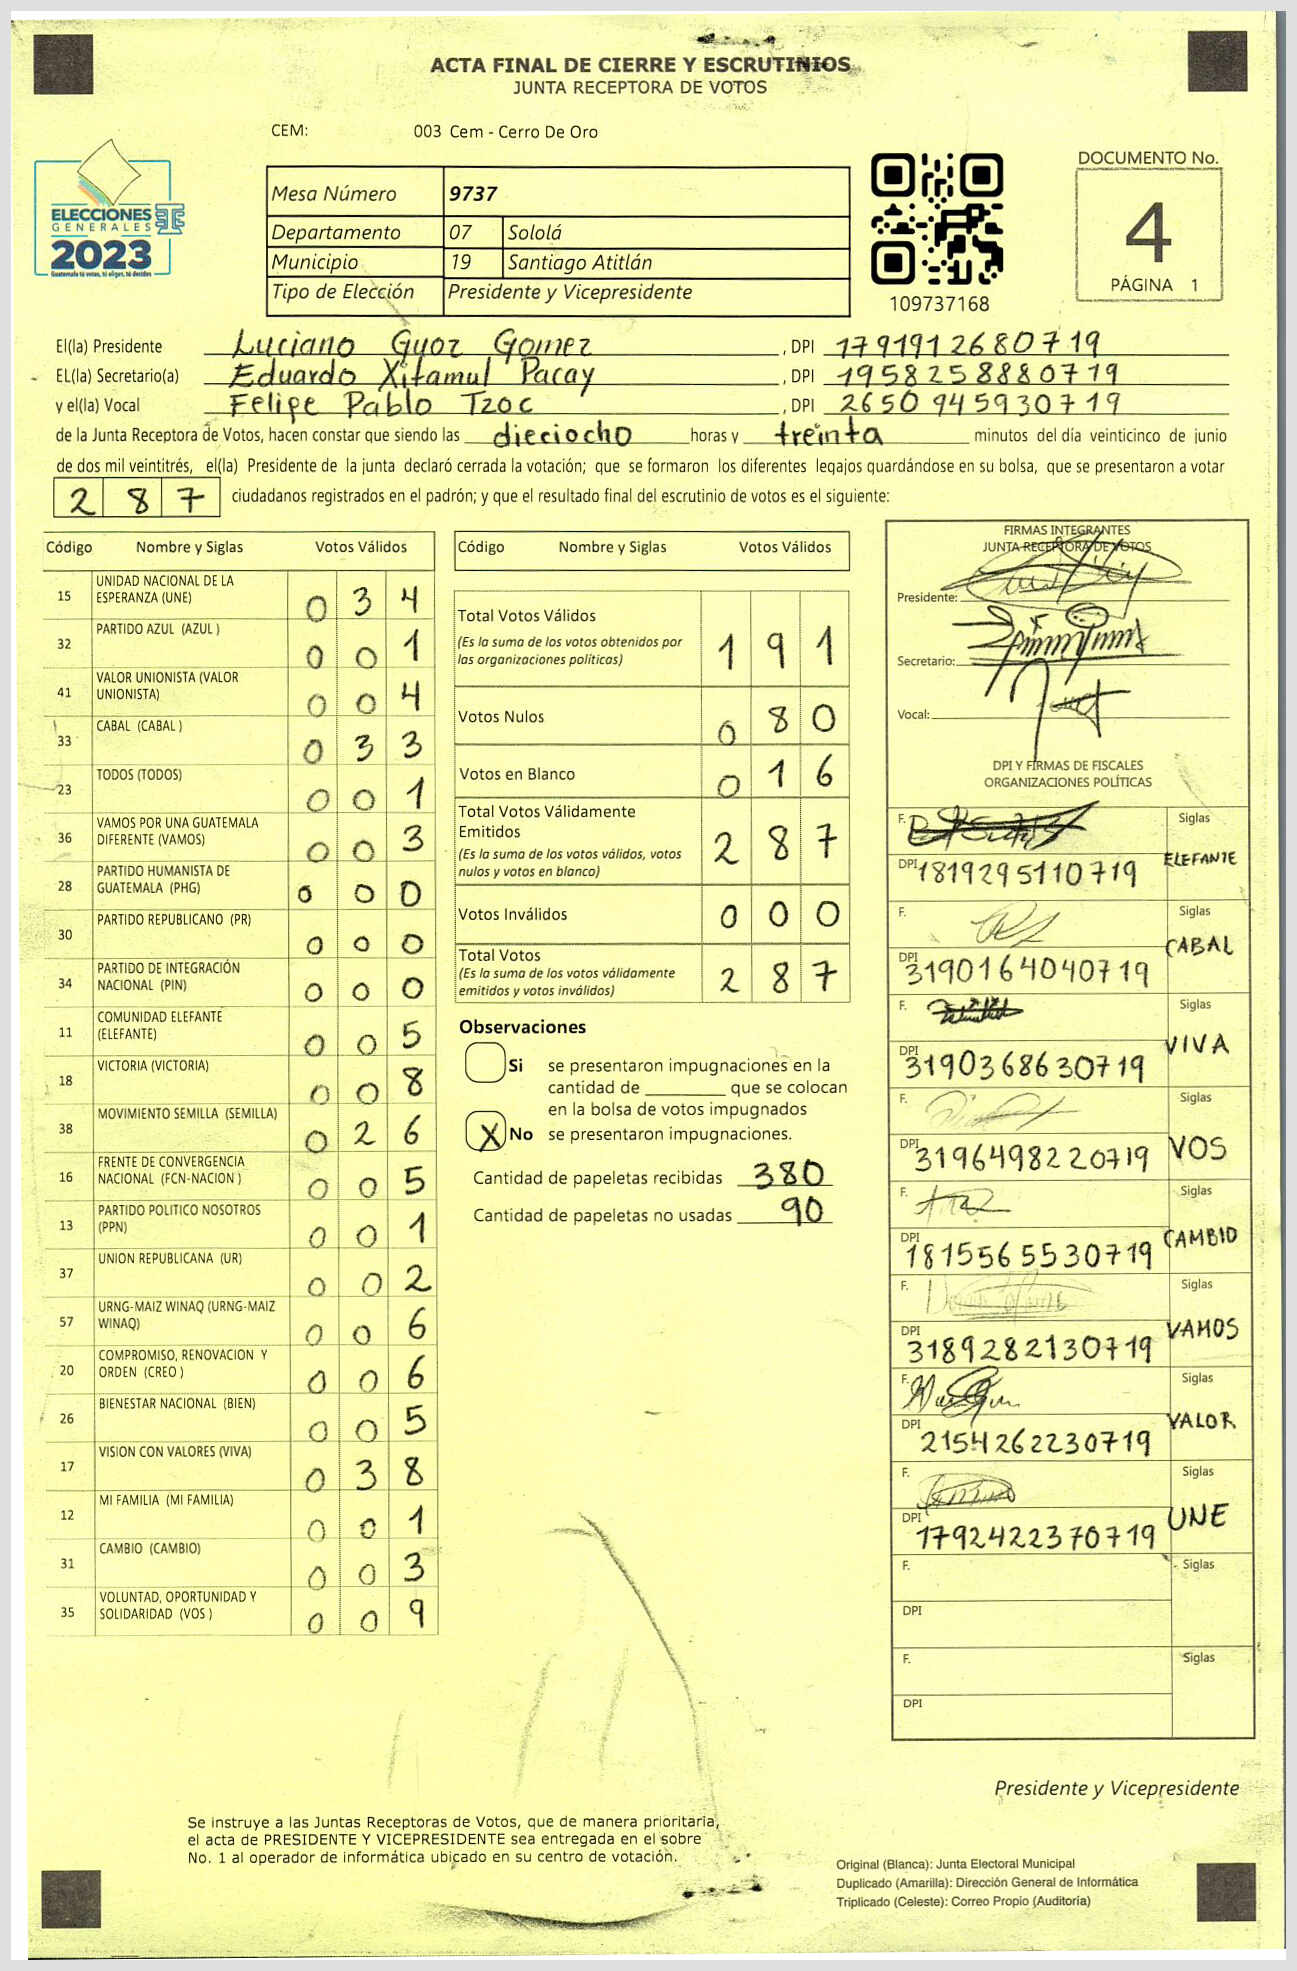 ACTA FINAL DE CIERRE Y ESCRUTINIOS
JUNTA RECEPTORA DE VOTOS
CEM: 003 Cem - Cerro De Oro
ELECCIONES
GENERALES
2023
Guatemala tú votas, tú eliges, tú decides
Mesa Número 9737
Departamento 07 Sololá
Municipio 19 Santiago Atitlán
Tipo de Elección Presidente y Vicepresidente
109737168
DOCUMENTO No.
4
PÁGINA 1
El(la) Presidente Luciano Guoz Gomez , DPI 1791912680719
EL(la) Secretario(a) Eduardo Xitamul Pacay , DPI 1958258880719
y el(la) Vocal Felipe Pablo Tzoc , DPI 2650945930719
de la Junta Receptora de Votos, hacen constar que siendo las dieciocho horas y treinta minutos del día veinticinco de junio
de dos mil veintitrés, el(la) Presidente de la junta declaró cerrada la votación; que se formaron los diferentes legajos guardándose en su bolsa, que se presentaron a votar
287 ciudadanos registrados en el padrón; y que el resultado final del escrutinio de votos es el siguiente:
Código Nombre y Siglas Votos Válidos
15 UNIDAD NACIONAL DE LA ESPERANZA (UNE) 034
32 PARTIDO AZUL (AZUL ) 001
41 VALOR UNIONISTA (VALOR UNIONISTA) 004
33 CABAL (CABAL ) 033
23 TODOS (TODOS) 001
36 VAMOS POR UNA GUATEMALA DIFERENTE (VAMOS) 003
28 PARTIDO HUMANISTA DE GUATEMALA (PHG) 000
30 PARTIDO REPUBLICANO (PR) 000
34 PARTIDO DE INTEGRACIÓN NACIONAL (PIN) 000
11 COMUNIDAD ELEFANTE (ELEFANTE) 005
18 VICTORIA (VICTORIA) 008
38 MOVIMIENTO SEMILLA (SEMILLA) 026
16 FRENTE DE CONVERGENCIA NACIONAL (FCN-NACION ) 005
13 PARTIDO POLITICO NOSOTROS (PPN) 001
37 UNION REPUBLICANA (UR) 002
57 URNG-MAIZ WINAQ (URNG-MAIZ WINAQ) 006
20 COMPROMISO, RENOVACION Y ORDEN (CREO ) 006
26 BIENESTAR NACIONAL (BIEN) 005
17 VISION CON VALORES (VIVA) 038
12 MI FAMILIA (MI FAMILIA) 001
31 CAMBIO (CAMBIO) 003
35 VOLUNTAD, OPORTUNIDAD Y SOLIDARIDAD (VOS ) 009
Código Nombre y Siglas Votos Válidos
Total Votos Válidos 191
(Es la suma de los votos obtenidos por
las organizaciones políticas)
Votos Nulos 080
Votos en Blanco 016
Total Votos Válidamente
Emitidos 287
(Es la suma de los votos válidos, votos
nulos y votos en blanco)
Votos Inválidos 000
Total Votos 287
(Es la suma de los votos válidamente
emitidos y votos inválidos)
Observaciones
Si se presentaron impugnaciones en la
cantidad de ________ que se colocan
en la bolsa de votos impugnados
X No se presentaron impugnaciones.
Cantidad de papeletas recibidas 380
Cantidad de papeletas no usadas 90
FIRMAS INTEGRANTES
JUNTA RECEPTORA DE VOTOS
Presidente:
Secretario:
Vocal:
DPI Y FIRMAS DE FISCALES
ORGANIZACIONES POLÍTICAS
F. Siglas
DPI 1819295110719 ELEFANTE
F. Siglas
DPI 3190164040719 CABAL
F. Siglas
DPI 3190368630719 VIVA
F. Siglas
DPI 3196498220719 VOS
F. Siglas
DPI 1815565530719 CAMBIO
F. Siglas
DPI 3189282130719 VAMOS
F. Siglas
DPI 2154262230719 VALOR
F. Siglas
DPI 1792422370719 UNE
F. Siglas
DPI
F. Siglas
DPI
Presidente y Vicepresidente
Se instruye a las Juntas Receptoras de Votos, que de manera prioritaria,
el acta de PRESIDENTE Y VICEPRESIDENTE sea entregada en el sobre
No. 1 al operador de informática ubicado en su centro de votación.
Original (Blanca): Junta Electoral Municipal
Duplicado (Amarilla): Dirección General de Informática
Triplicado (Celeste): Correo Propio (Auditoría)